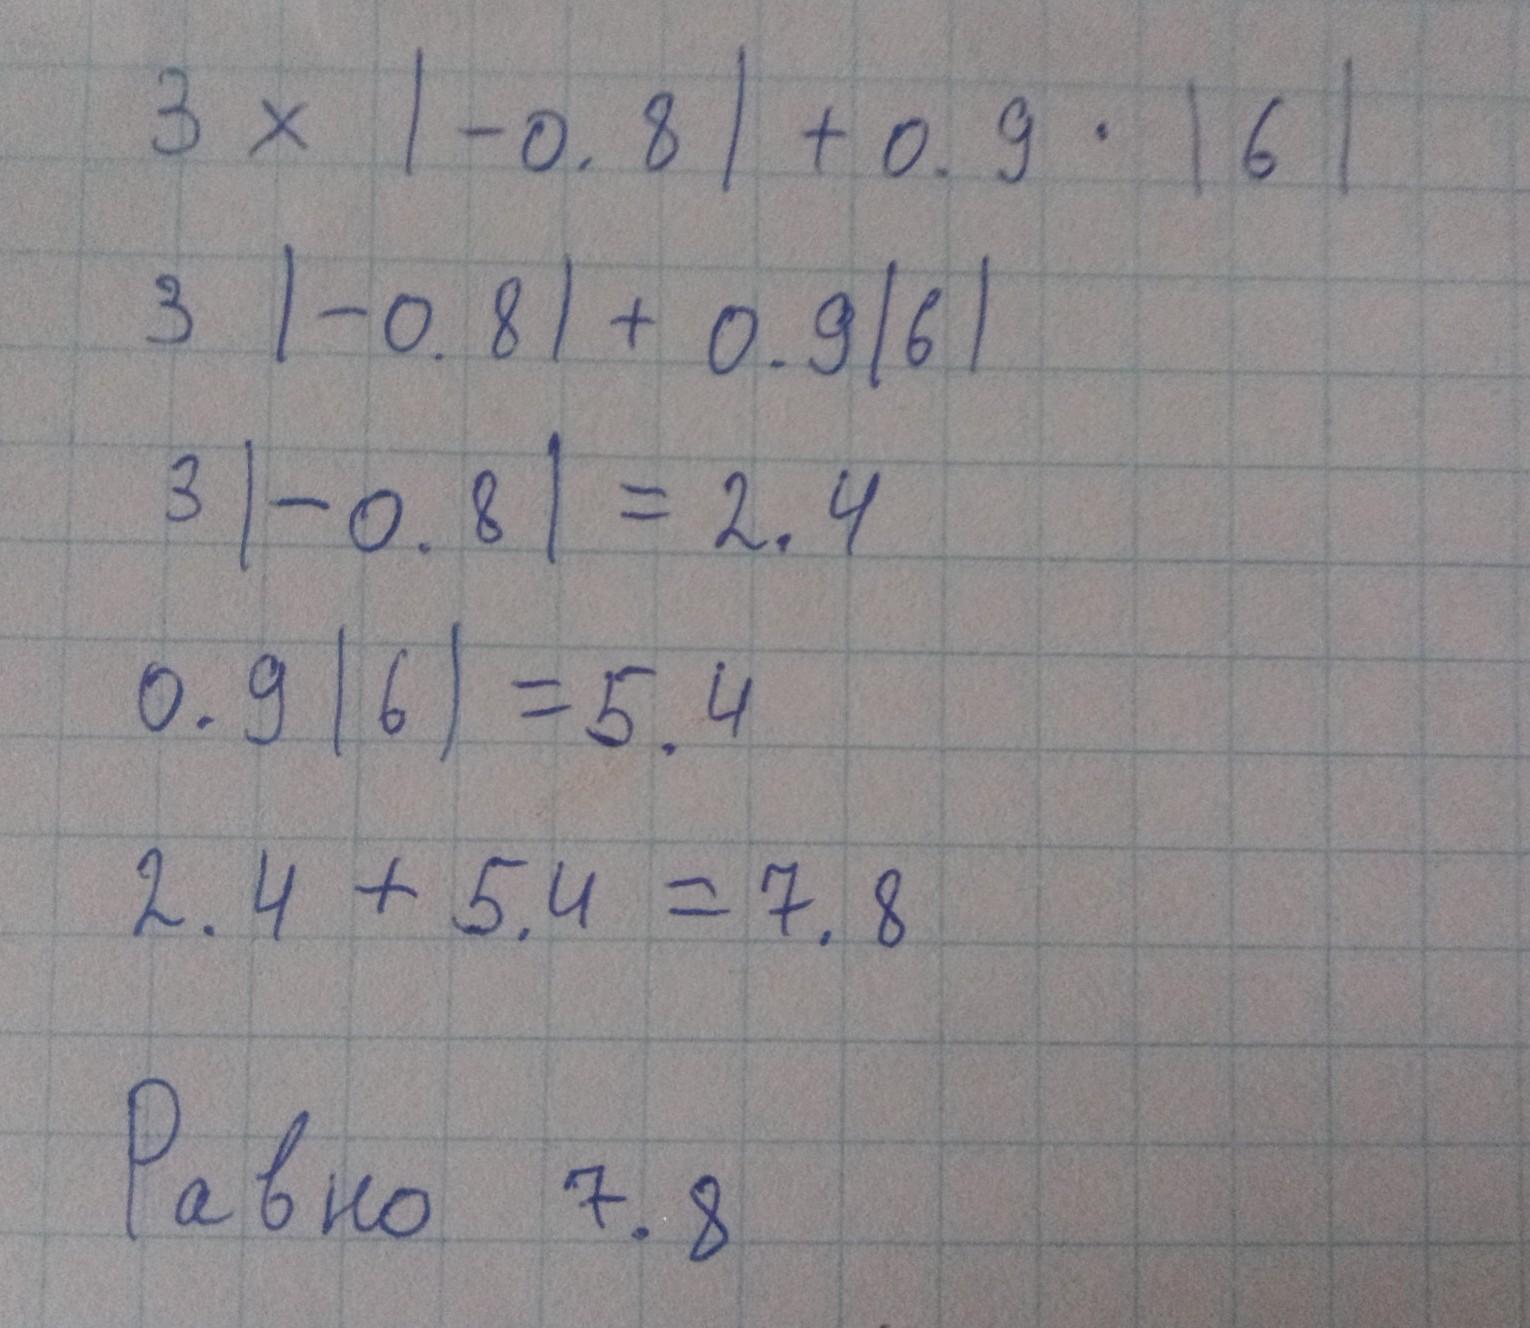 3 × |-0.8| + 0.9 · |6|
3 |-0.8| + 0.9|6|
3|-0.8| = 2.4
0.9|6| = 5.4
2.4 + 5.4 = 7.8
Равно 7.8